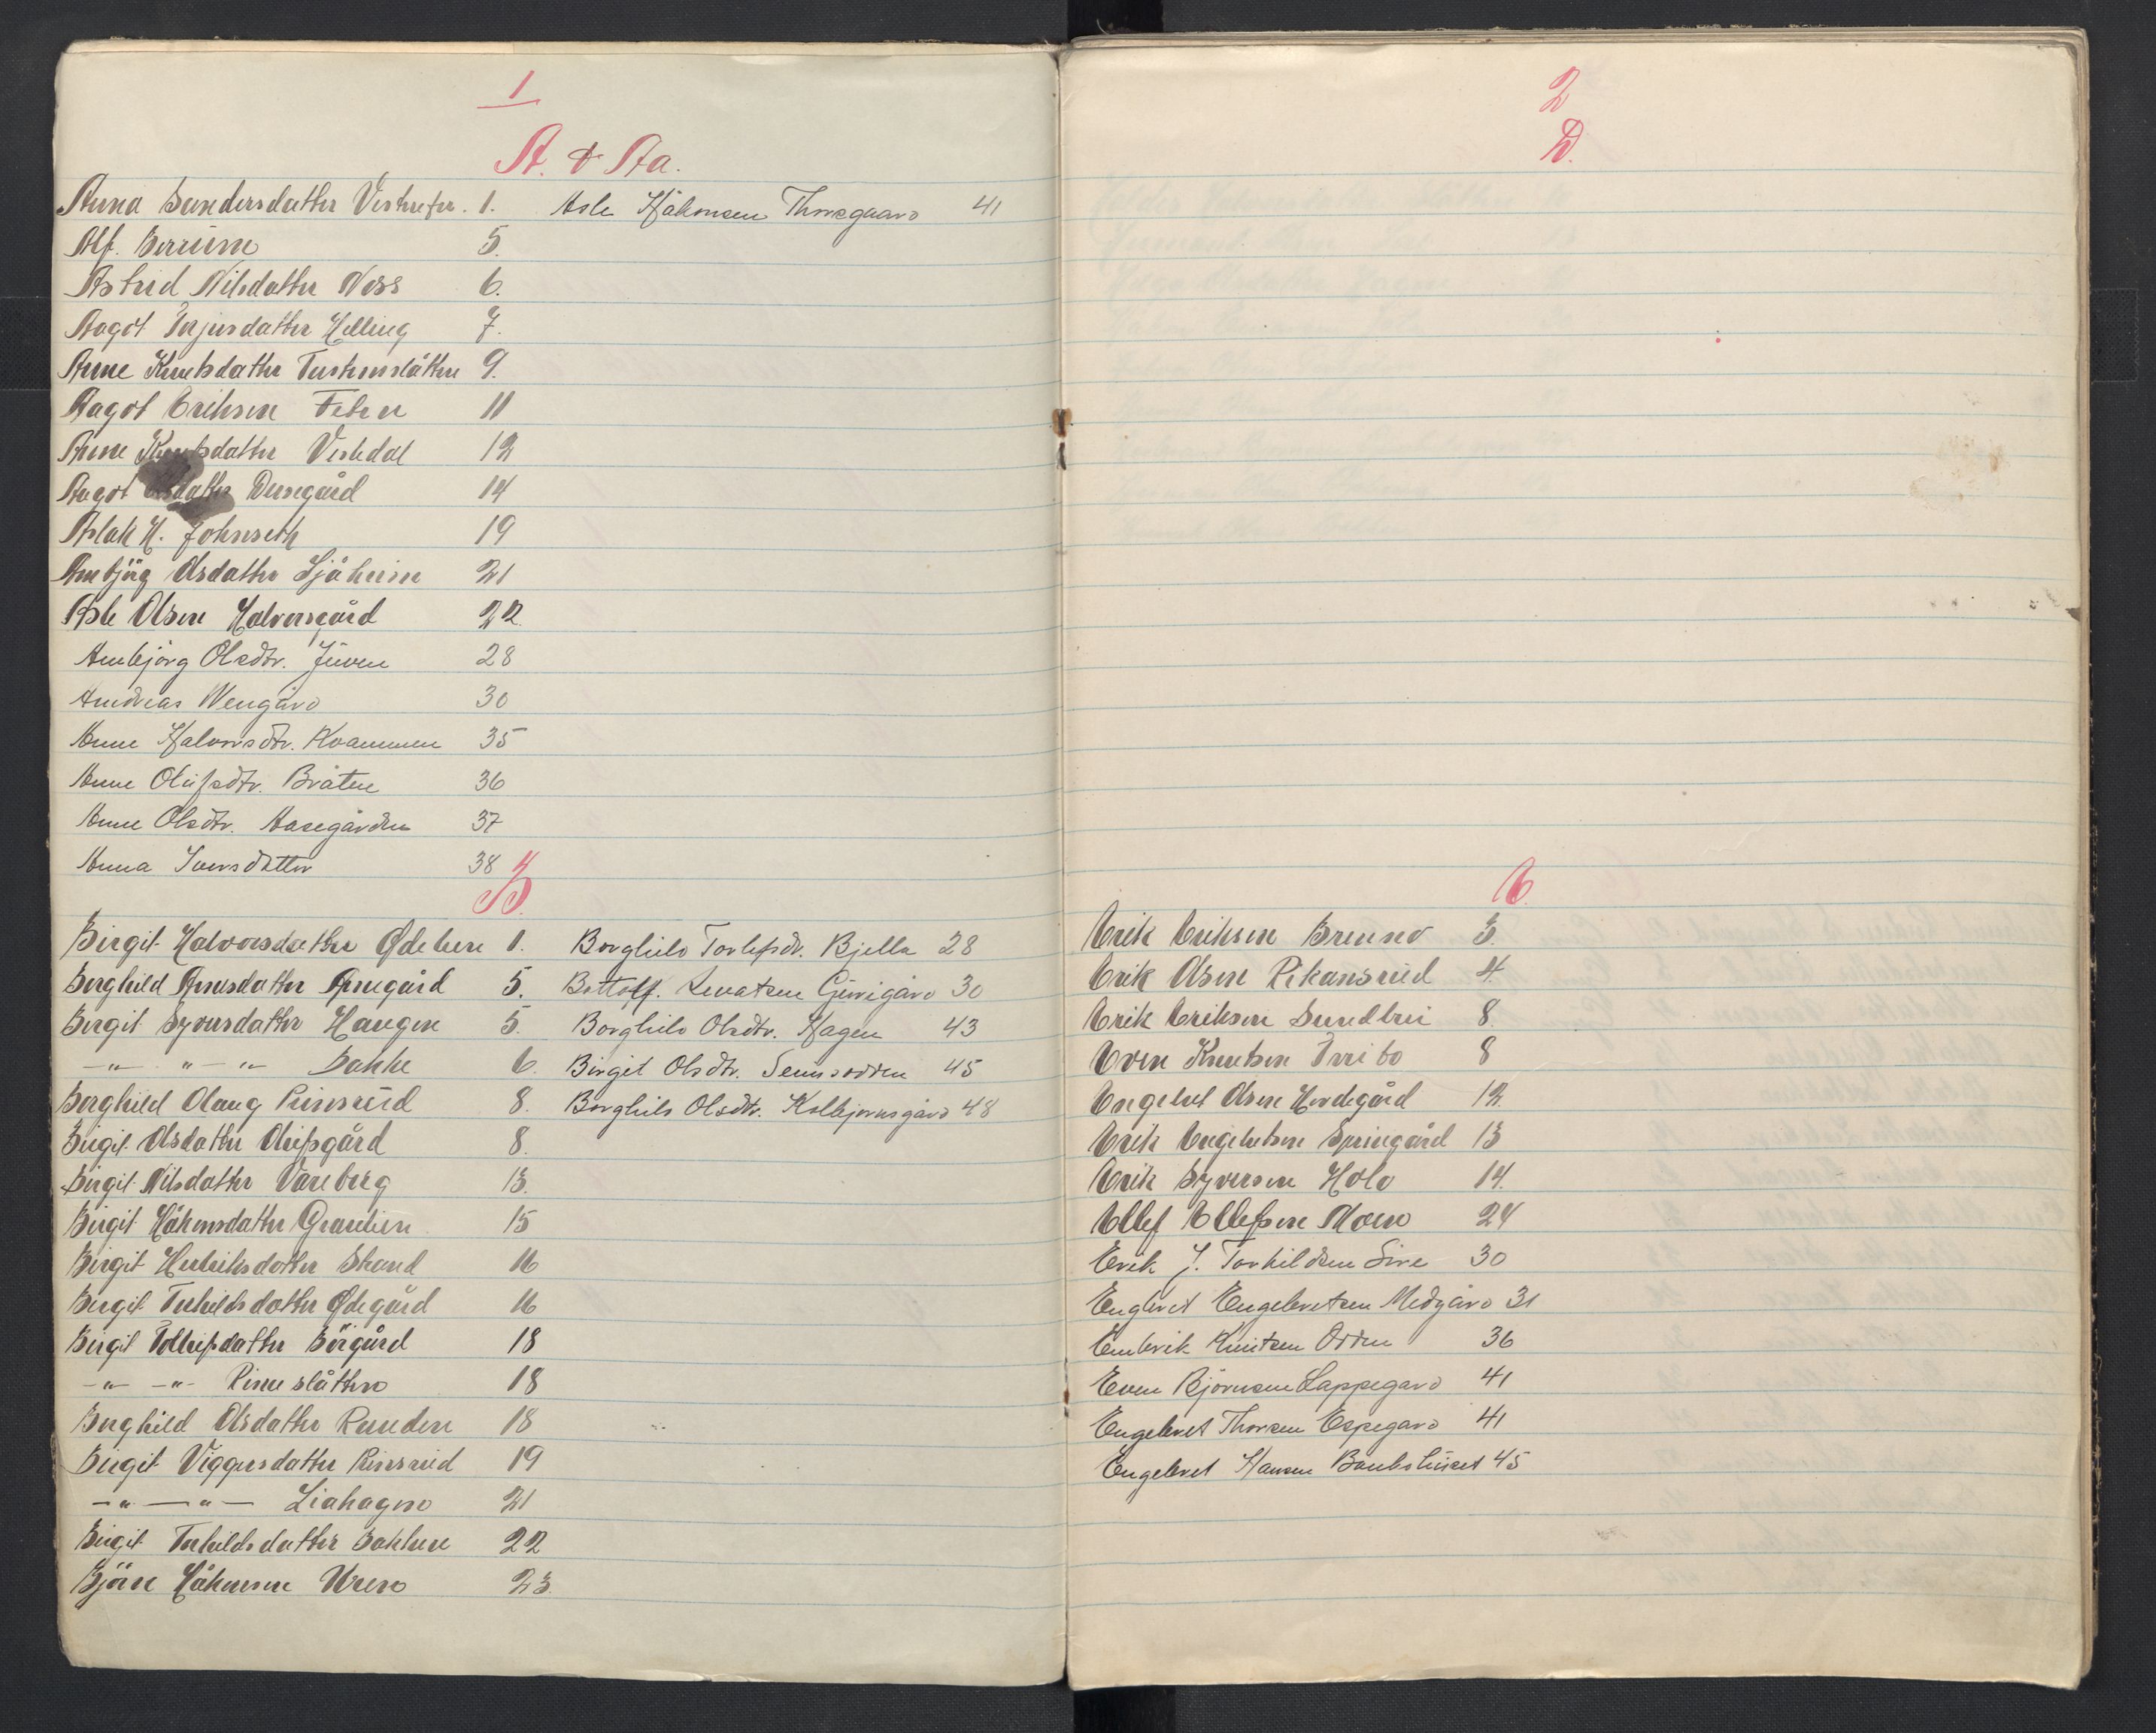 1
A. & Aa.
Anna Sandersdatter 1.
Alf. Berrum 5.
Astrid Nilsdatter Ness 6.
Aagot Terjusdatter Helling 7.
Anne Knutsdatter 9.
Aagot Eriksen 11
Anne Knutsdatter Vestdal 12
Aagot Olsdatter 14
Aslak H. Johnseth 19
Ambjörg Olsdatter Sjåheim 21
Asle Olsen Halvorsgård 22.
Ambjörg Olsdtr. Juven 28
Andreas Wengård 30
Anne Halvorsdtr. Kvammen 35
Anne Olufsdtr. Bråten 36
Anne Olsdtr. Aasegården 37
Anna Iversdatter 38
Asle Håkonsen Thorsgaard 41
B.
Birgit Halvorsdatter 1.
Borghild Arnesdatter Arnegård 5.
Birgit Syversdatter Haugen 5.
–"– "–"– Bakke 6.
Borghild Olaug Rimsrud 8.
Birgit Olsdatter Olufsgård 8.
Birgit Nilsdatter 13.
Birgit Håkonsdatter 15
Birgit Henriksdatter 16
Birgit Torkildsdatter Ødegård 16
Birgit Tollefsdatter Börgård 18
–"– –"– Rimeslåtten 18
Borghild Olsdatter Randen 18
Birgit Viggersdatter Rimsrud 19
–"–"– Liahagen 21
Birgit Torkildsdatter Bakken 22
Björn Håkonsen 23.
Borghild Torlefsdr. Bjella 28
Bottolf. Levatsen Gurigård 30
Borghild Olsdtr. Hagen 43
Birgit Olsdtr. 45
Borghild Olsdtr. Kolbjornsgård 48
2
D.
E.
Erik Eriksen Brenno 3.
Erik Olsen Pikansrud 4.
Erik Eriksen Sundbrei 8.
Even Knutsen 8
Engebret Olsen Hovdegård 12.
Erik Engebretsen Springård 13
Erik Syversen Holo 14.
Ellef Ellefsen Moen 24
Erik J. Torkildsen Sire 30
Engbret Engebretsen Medgård 31
Embrik Knutsen Odden 36
Even Björnsen Lappegard 41
Engebret Thorsen Espegard 41
Engebret Hansen 45